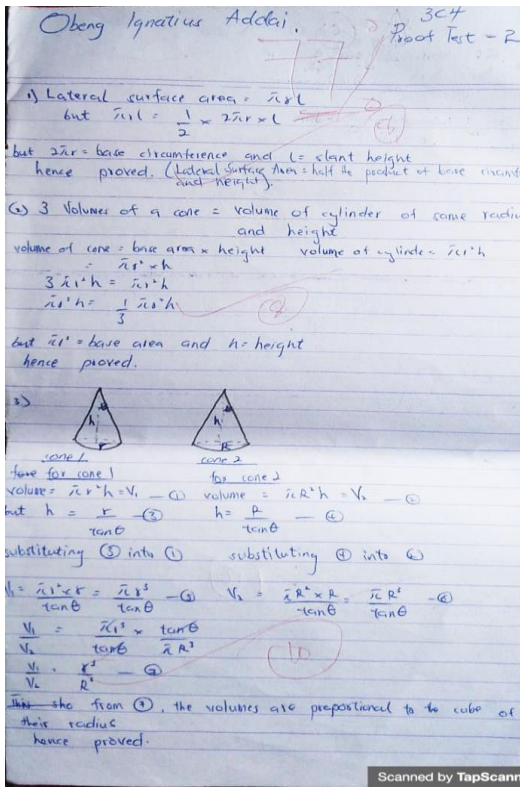 Obeng Ignatius Addai.
3C4
Proof Test - 2
77
1) Lateral surface area = π̄rl
but π̄rl = 1/2 × 2π̄r × l
but 2π̄r = base circumference and l = slant height
hence proved. (Lateral Surface Area = half the product of base circumf
and height).
(2) 3 Volumes of a cone = volume of cylinder of same radiu
and height
volume of cone = base area × height volume of cylinder = π̄r²h
= π̄r² × h
3π̄r²h = π̄r²h
π̄r²h = 1/3 π̄r²h
but π̄r² = base area and h = height
hence proved.
3)
h θ r
h θ R
cone 1 cone 2
for cone 1 for cone 2
volume = π̄r²h = V₁ — ① volume = π̄R²h = V₂ — ②
but h = r/tanθ — ③ h = R/tanθ — ④
substituting ③ into ① substituting ④ into ②
V₁ = π̄r² × r/tanθ = π̄r³/tanθ — ⑤ V₂ = π̄R² × R/tanθ = π̄R³/tanθ — ⑥
V₁/V₂ = π̄r³/tanθ × tanθ/π̄R³
V₁/V₂ = r³/R³ — ⑦
10
from ⑦, the volumes are proportional to the cube of
their radius
hence proved.
Scanned by TapScann